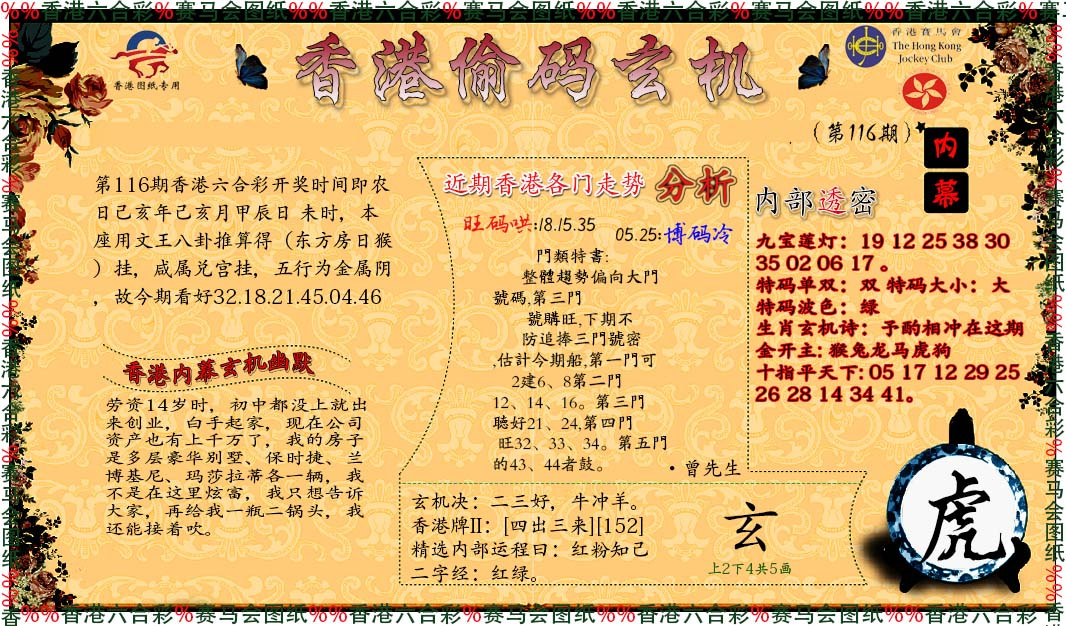 %%香港六合彩%赛马会图纸%%香港六合彩%赛马会图纸%%香港六合彩%赛马会图纸%%香港六合彩%赛马会图纸%%香港六合彩%赛马
香港图纸专用
香港偷码玄机
香港賽馬會
The Hong Kong
Jockey Club
(第116期)
内幕
第116期香港六合彩开奖时间即农
日己亥年己亥月甲辰日 未时，本
座用文王八卦推算得（东方房日猴
）挂，咸属兑宫挂，五行为金属阴
，故今期看好32.18.21.45.04.46
香港内幕玄机幽默
劳资14岁时，初中都没上就出
来创业，白手起家，现在公司
资产也有上千万了，我的房子
是多层豪华别墅、保时捷、兰
博基尼、玛莎拉蒂各一辆，我
不是在这里炫富，我只想告诉
大家，再给我一瓶二锅头，我
还能接着吹。
近期香港各门走势 分析
旺码哄:18.15.35
05.25:博码冷
門類特書:
整體趨勢偏向大門
號碼,第三門
號購旺,下期不
防追捧三門號密
,估計今期船,第一門可
2建6、8第二門
12、14、16。第三門
聽好21、24,第四門
旺32、33、34。第五門
的43、44者鼓。
•曾先生
玄机决：二三好，牛冲羊。
香港牌II：[四出三来][152]
精选内部运程曰：红粉知己
二字经：红绿。
玄
上2下4共5画
内部透密
九宝莲灯：19 12 25 38 30
35 02 06 17 。
特码单双：双 特码大小：大
特码波色：绿
生肖玄机诗：予酌相冲在这期
金开主: 猴兔龙马虎狗
十指平天下: 05 17 12 29 25
26 28 14 34 41。
虎
香%%香港六合彩%赛马会图纸%%香港六合彩%赛马会图纸%%香港六合彩%赛马会图纸%%香港六合彩%赛马会图纸%%香港六合彩